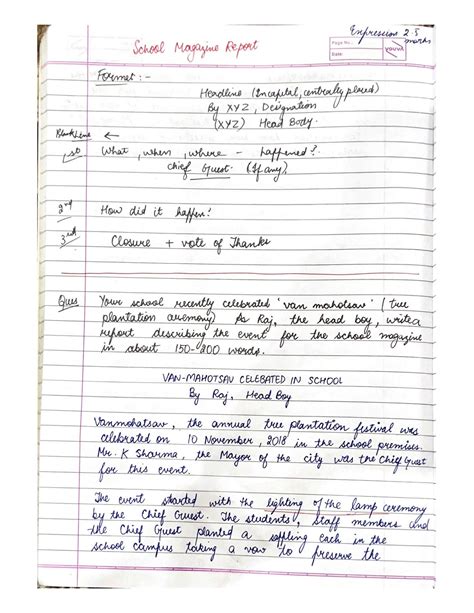 Expression 2.5 marks
Page No.
Date:
YOUVA
School Magazine Report
Format :-
Headline (In capital, centrally placed)
By XYZ, Designation
(XYZ) Head Boy.
Blank Line ←
1st What, when, where - happened?
Chief Guest (If any)
2nd How did it happen?
3rd Closure + vote of Thanks
Ques Your school recently celebrated 'van mahotsav' / tree
plantation ceremony) As Raj, the head boy, write a
report describing the event for the school magazine
in about 150-200 words.
VAN-MAHOTSAV CELEBATED IN SCHOOL
By Raj, Head Boy
Vanmohatsav, the annual tree plantation festival was
celebrated on 10 November, 2018 in the school premises.
Mr. K Sharma, the Mayor of the city was the Chief Guest
for this event.
The event started with the lighting of the lamp ceremony
by the Chief Guest. The students, staff members and
the Chief Guest planted a saffling each in the
school campus taking a vow to preserve the